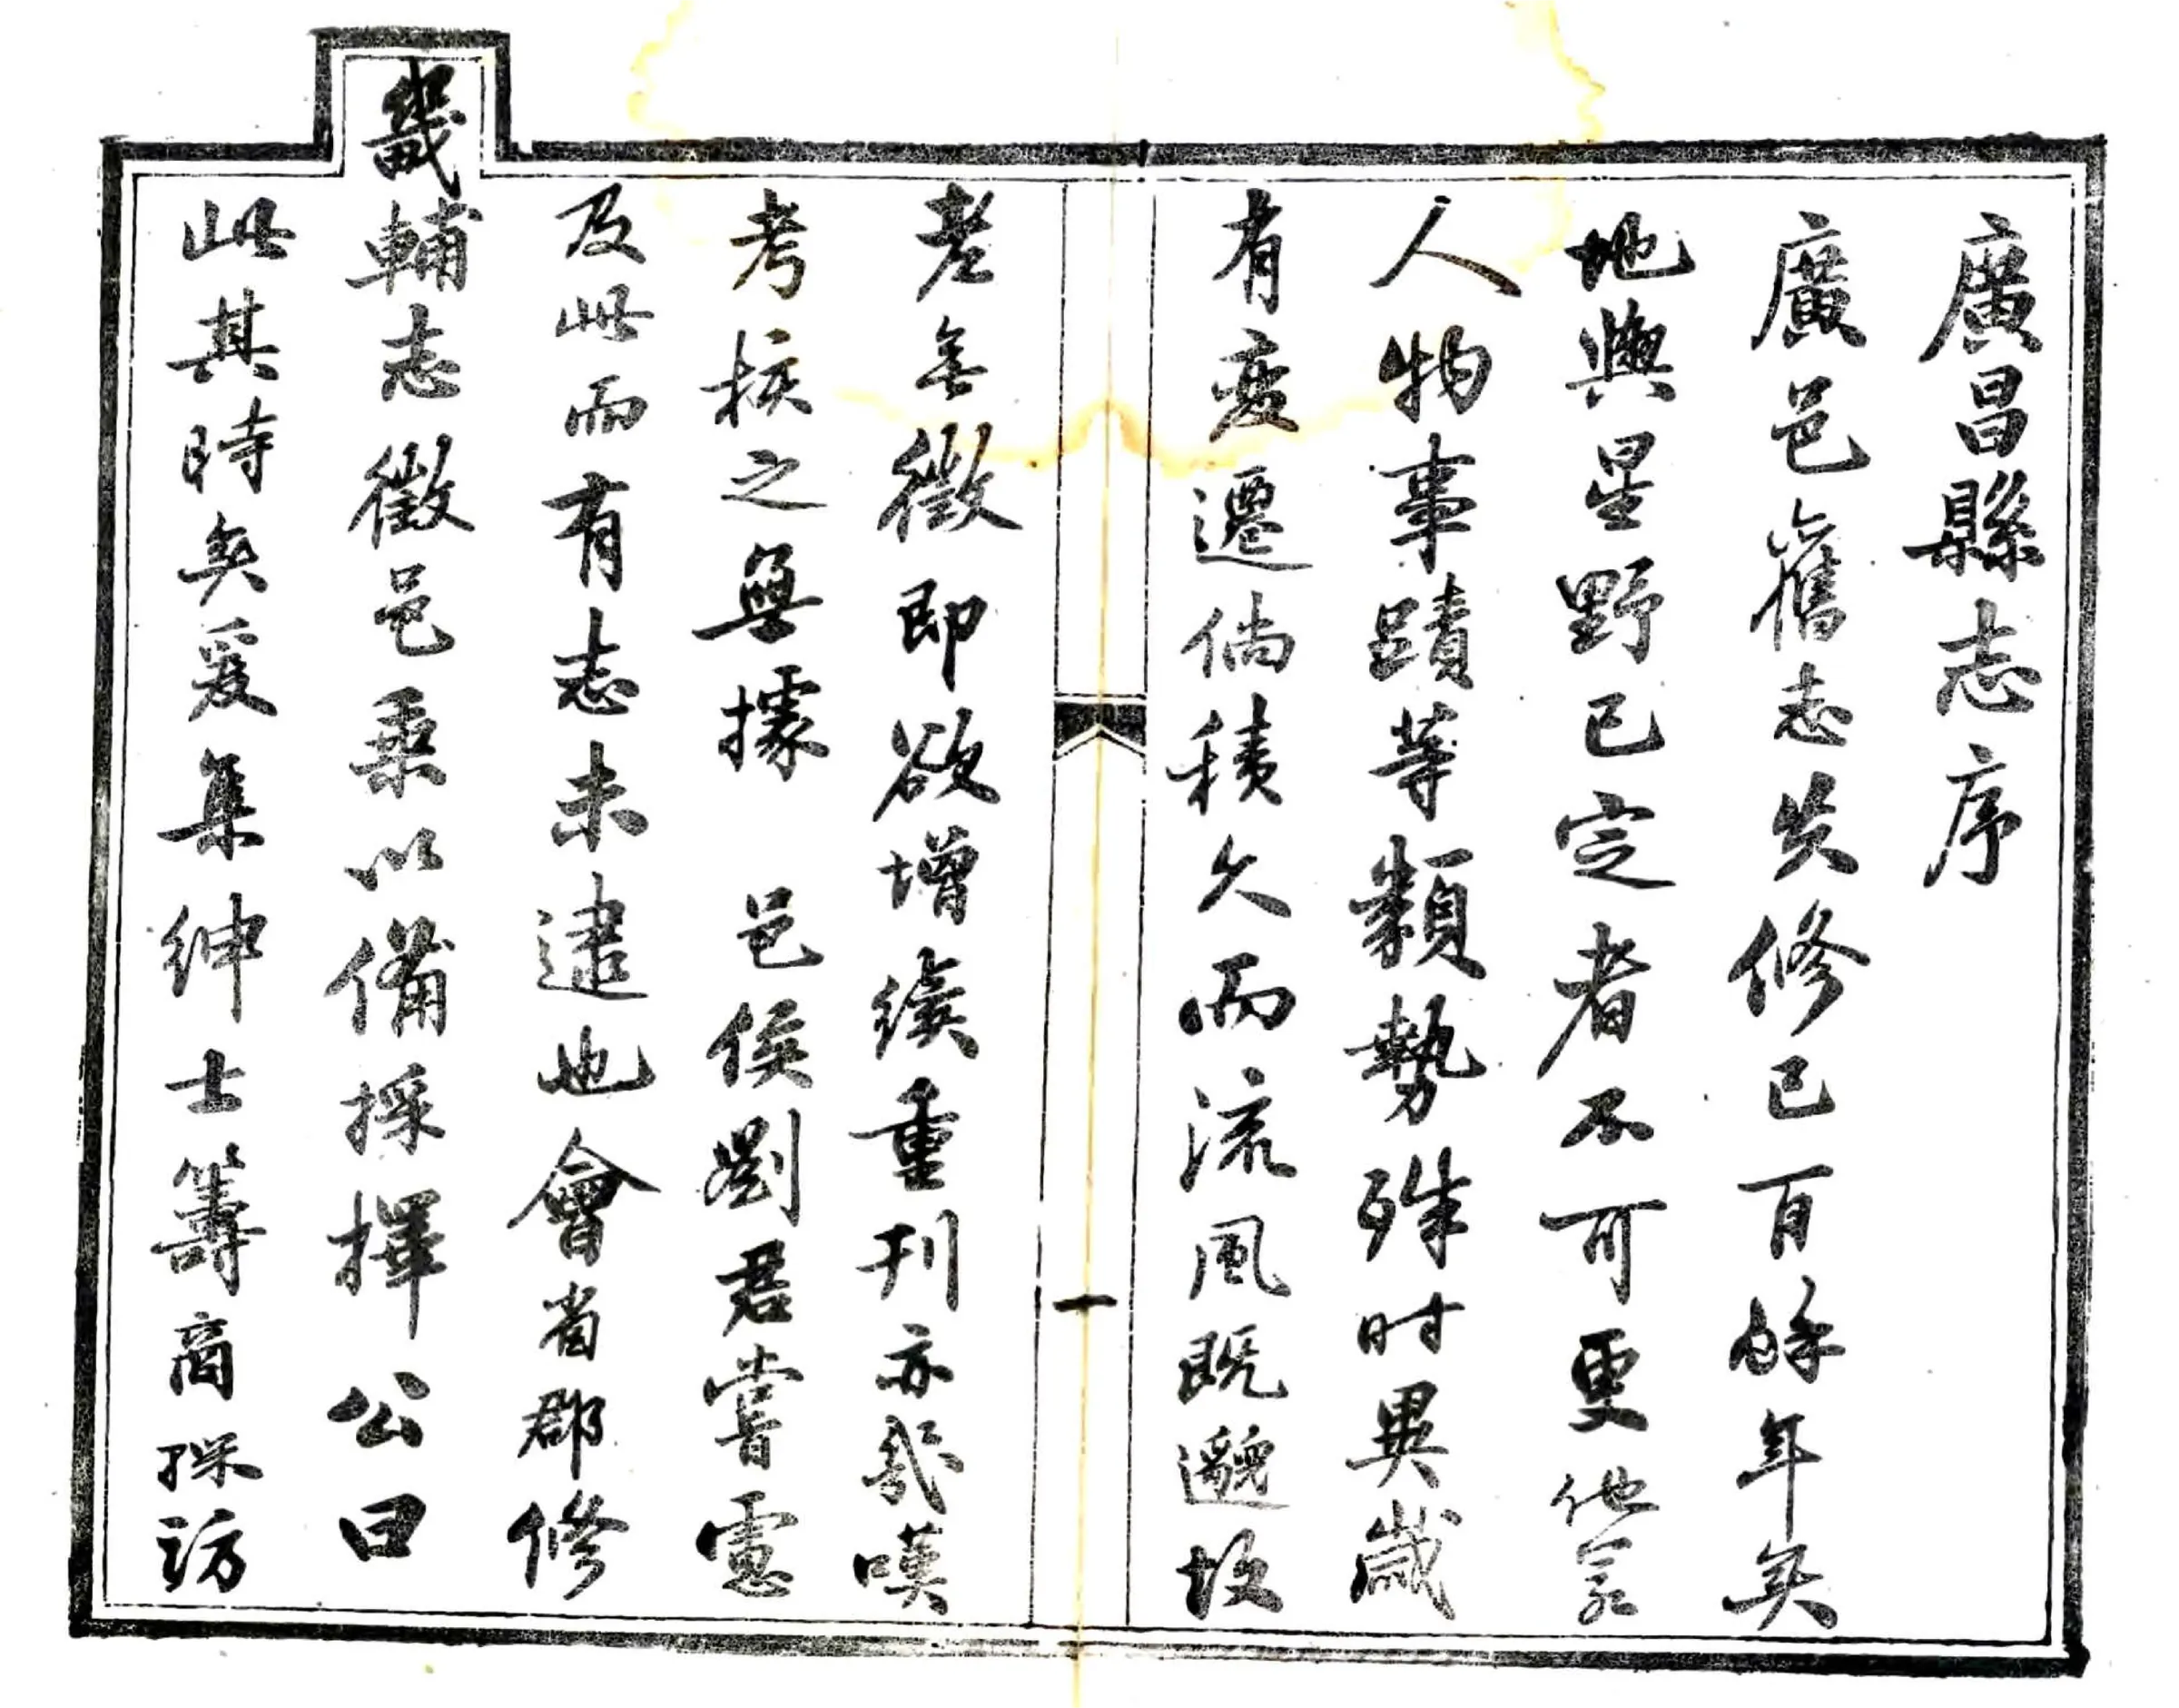 廣昌縣志序
廣邑舊志失修已百餘年矣
地輿星野已定者不可更他若
人物事蹟等類勢殊时異歲
有变遷倘積久而流風既邈故
老無徵即欲增續重刊亦我嘆
考核之無據 邑侯劉君嘗慮
及此而有志未逮也會省郡修
畿輔志徵邑乘以備採擇公曰
此其時矣爰集紳士籌商採訪
一